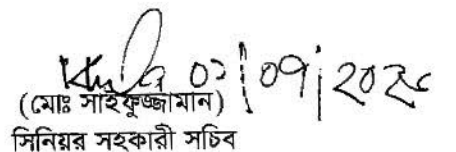 ০১|০৭|২০২৫
(মোঃ সাইফুজ্জামান)
সিনিয়র সহকারী সচিব